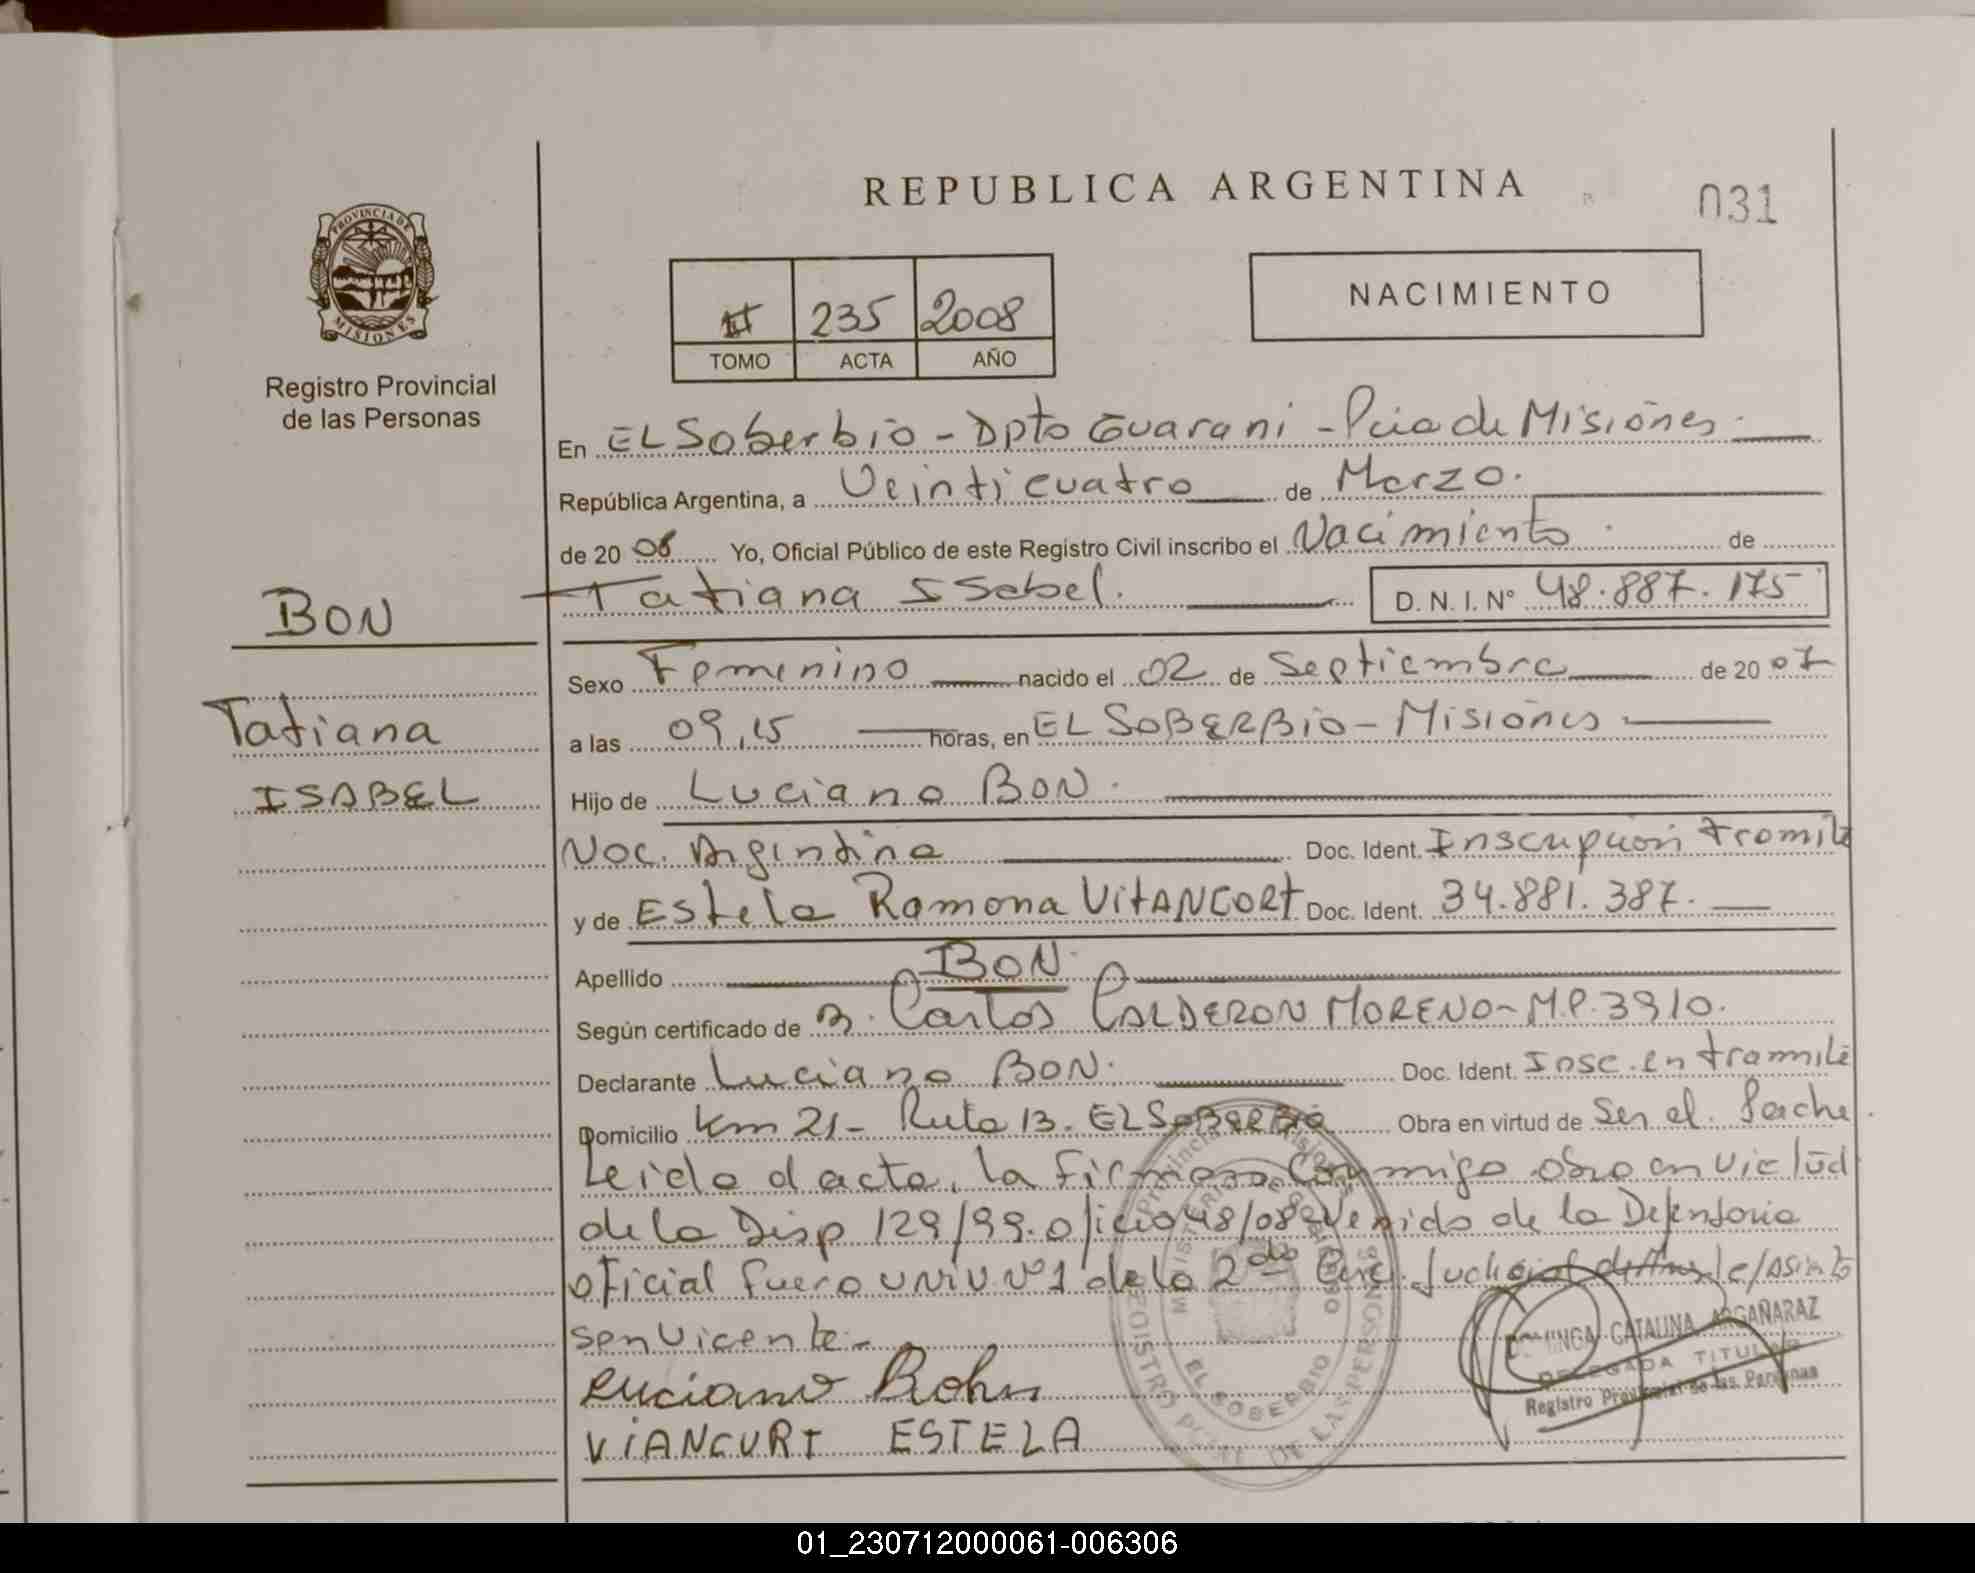 REPUBLICA ARGENTINA
031
PROVINCIA DE
MISIONES
Registro Provincial
de las Personas
II 235 2008
TOMO ACTA AÑO
NACIMIENTO
En EL Soberbio - Dpto Guarani - Pcia de Misiones.
República Argentina, a Veinticuatro de Marzo.
de 20 08 Yo, Oficial Público de este Registro Civil inscribo el Nacimiento. de
Tatiana Isabel. D. N. I. Nº 48.887.175
BON
Tatiana
ISABEL
Sexo Femenino nacido el 02 de Septiembre de 20 07
a las 09,15 horas, en EL SOBERBIO - Misiones
Hijo de Luciano BON.
Nac. Argentina Doc. Ident. Inscripcion tramite
y de Estela Ramona VITANCORT Doc. Ident. 34.881.387.
Apellido BON.
Según certificado de Carlos CALDERON MORENO - M.P. 3910.
Declarante Luciano BON. Doc. Ident. Insc. en tramite
Domicilio Km 21 - Ruta 13. EL SOBERBIO Obra en virtud de Ser el Padre.
Leida el acta, la firman conmigo obro en virtud
de la Disp 129/99. oficio 48/08 Venido de la Defensoria
oficial Fuero UNIV. Nº1 de la 2da Circ. Judicial c/asiento
San Vicente.-
Luciano Bohn
VIANCURT ESTELA
Provincia de Misiones
MINISTERIO DE GOBIERNO
REGISTRO PCIAL. DE LAS PERSONAS
EL SOBERBIO
DOMINGA CATALINA ARGAÑARAZ
DELEGADA TITULAR
Registro Provincial de las Personas
01_230712000061-006306